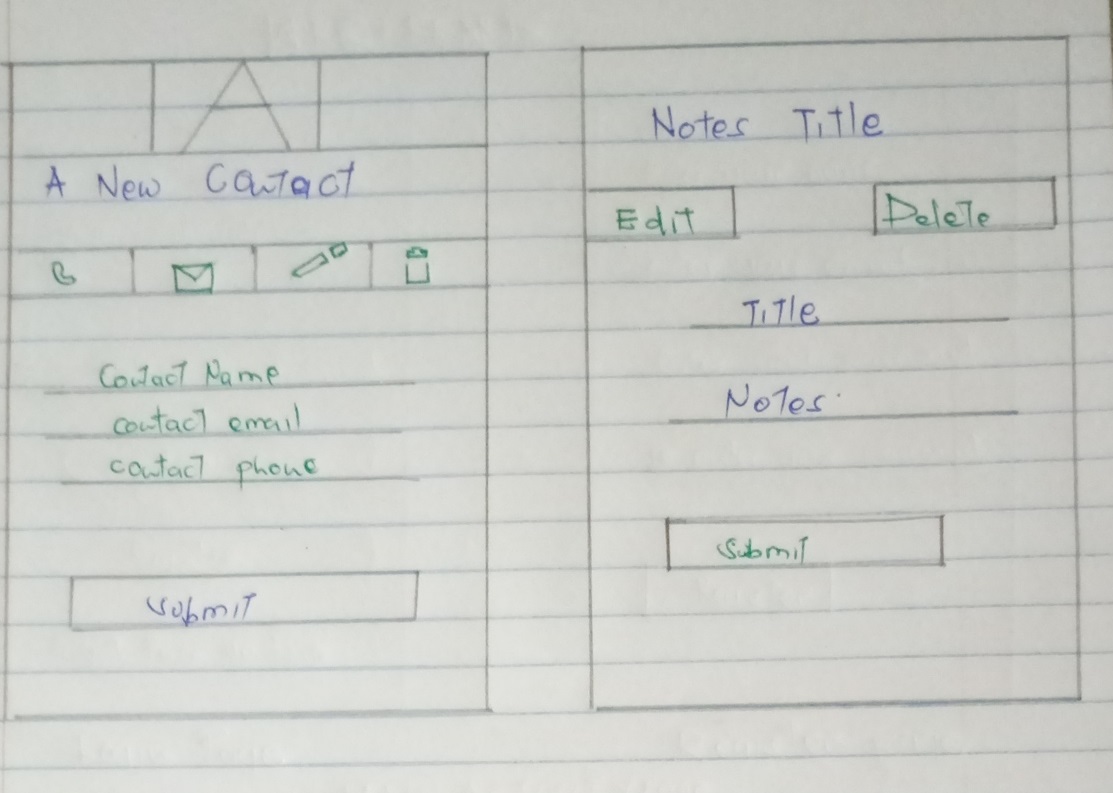 A
A New Contact
Contact Name
contact email
contact phone
Submit
Notes Title
Edit
Delete
Title
Notes
Submit